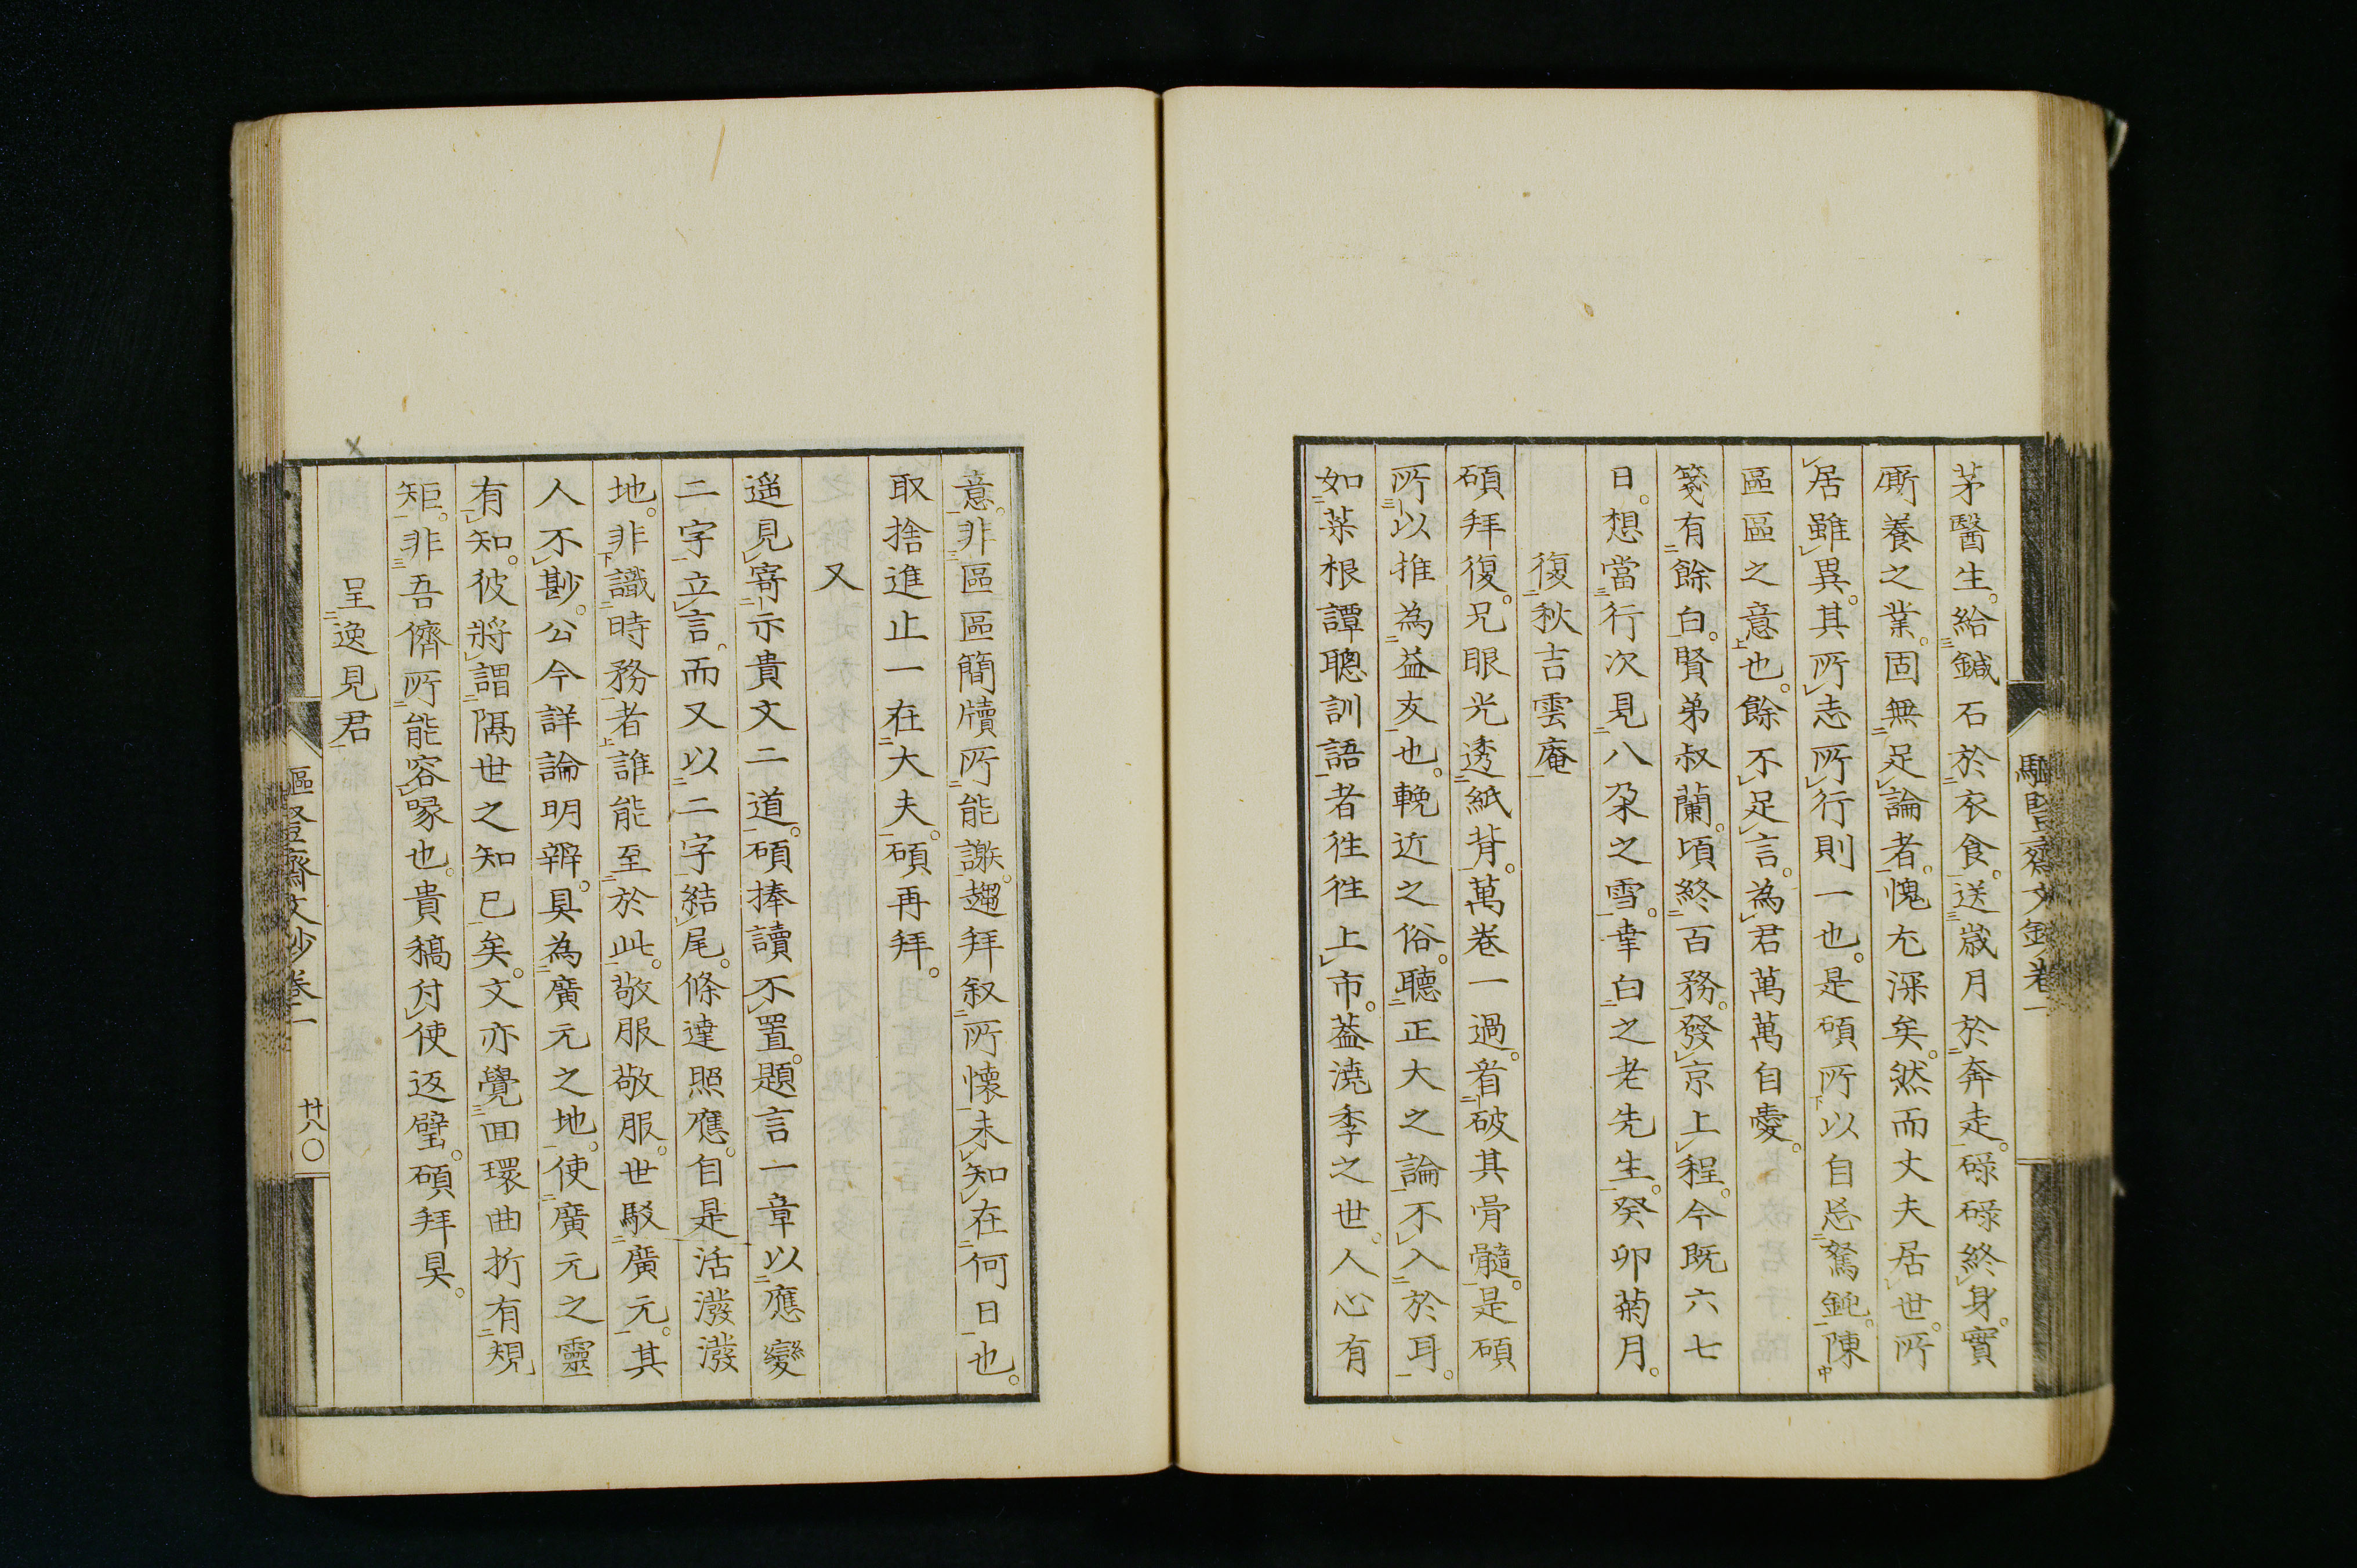 茅醫生。給鍼石於衣食。送歲月於奔走。碌碌終身。實
廝養之業。固無足論者。愧尢深矣。然而丈夫居世。所
居雖異。其所志所行則一也。是碩所以自忘駑鈍。陳
區區之意也。餘不足言。為君萬萬自愛。
箋有餘白。賢弟叔蘭。頃終百務。發京上程。今既六七
日。想當行次見八朶之雪。幸白之老先生。癸卯菊月。
復秋吉雲庵
碩拜復。兄眼光透紙背。萬卷一過。看破其骨髓。是碩
所以推為益友也。輓近之俗。聽正大之論不入於耳。
如菜根譚聰訓語者往往上市。蓋澆季之世。人心有
意。非區區簡牘所能謝。趨拜叙所懷未知在何日也。
取捨進止一在大夫。碩再拜。
又
遥見寄示貴文二道。碩捧讀不置。題言一章以應變
二字立言。而又以二字結尾。條達照應。自是活潑潑
地。非識時務者誰能至於此。敬服敬服。世駁廣元。其
人不尠。公今詳論明辨。具為廣元之地。使廣元之靈
有知。彼將謂隔世之知己矣。文亦覺回環曲折有規
矩。非吾儕所能容喙也。貴稿付使返璧。碩拜具。
呈逸見君
驅豎齋文鈔卷一
廿八